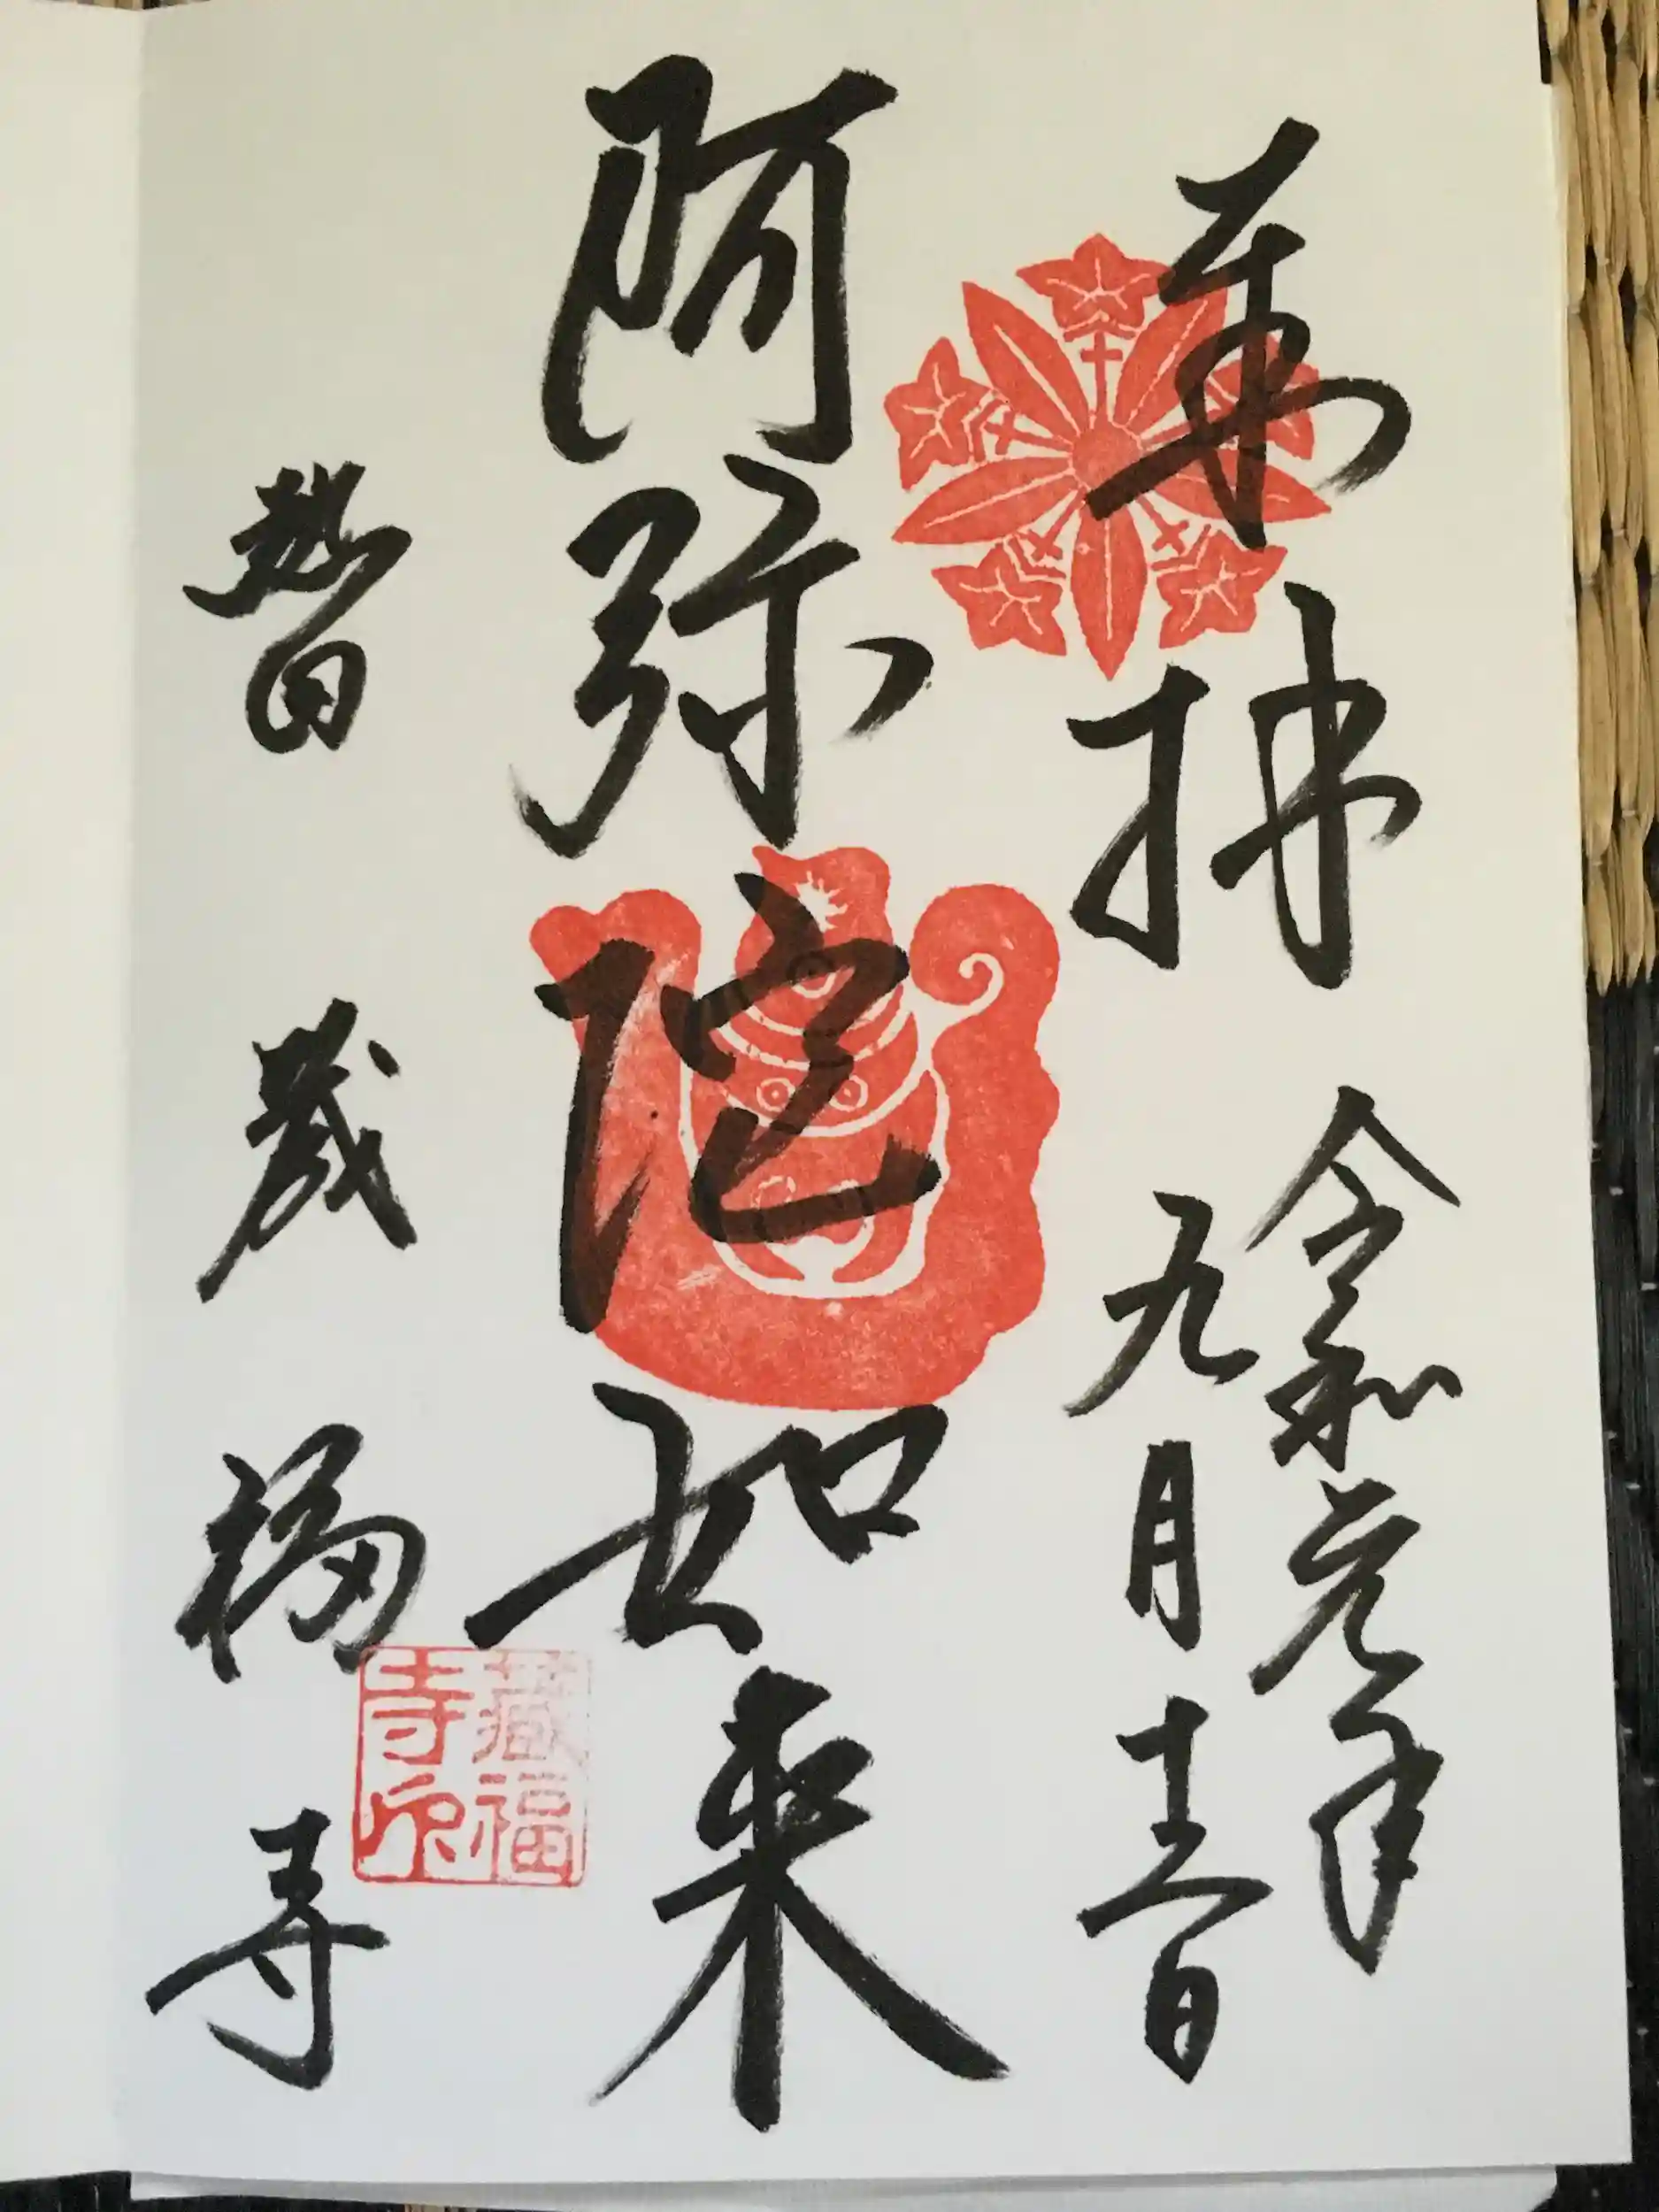 奉拝
令和元年
九月十 日
阿弥陀如来
熱田 蔵福寺
藏福
寺印